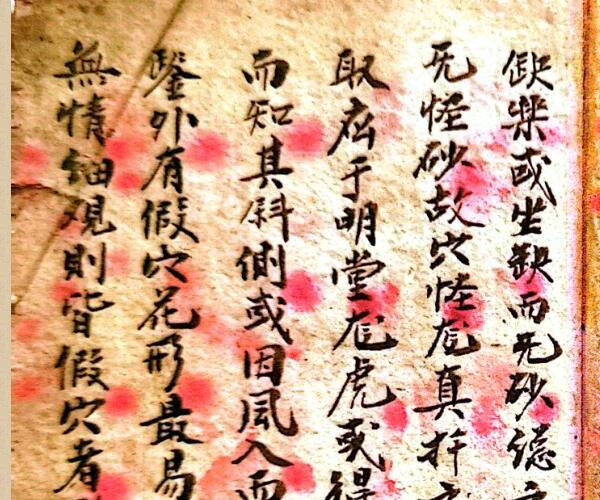 缺樂或坐缺而无砂
无怪砂故穴怪尨真扦
取店于明堂尨虎或得
而知其斜側或因風入而
鑒外有假穴花形最易
無情細观則皆假穴者